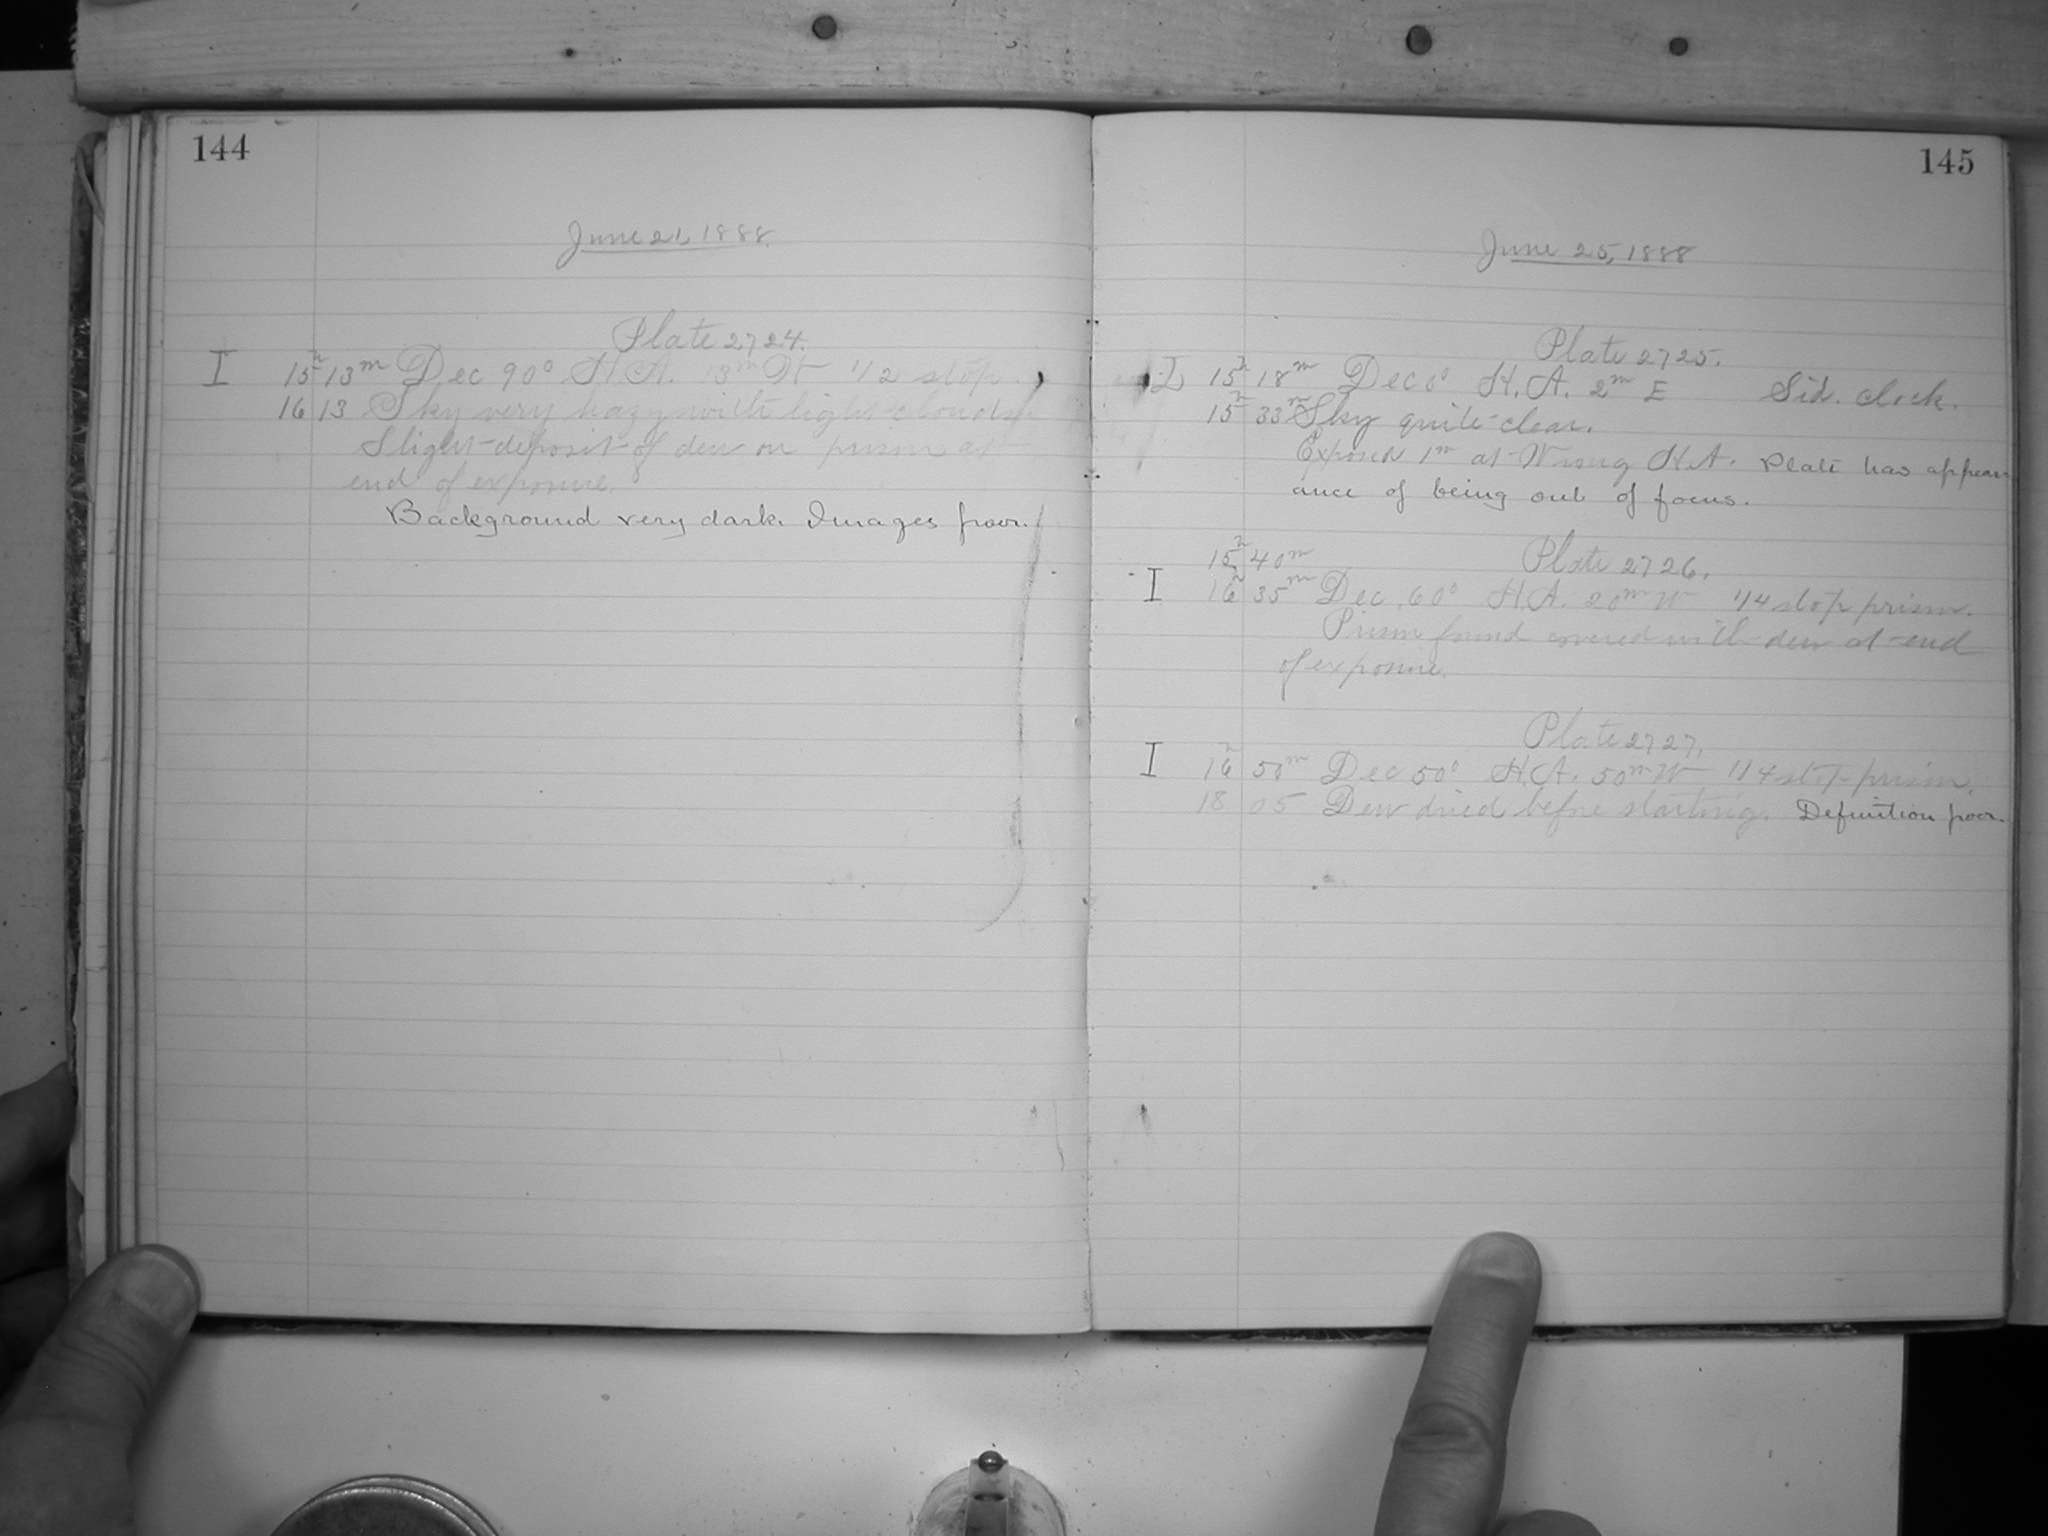 144
June 21, 1888.
Plate 2724.
I 15h 13m Dec 90° H.A. 13m W 1/2 stop.
16 13 Sky very hazy with light clouds.
Slight deposit of dew on prism at
end of exposure.
Background very dark. Images poor.
145
June 25, 1888
Plate 2725.
2 15h 18m Dec 0° H.A. 2m E Sid. clock.
15h 33m Sky quite clear.
Exposed 1m at Wrong H.A. Plate has appear
ance of being out of focus.
15h 40m Plate 2726.
I 16h 35m Dec. 60° H.A. 20m W 1/4 stop prism.
Prism found covered with dew at end
of exposure.
Plate 2727.
I 16h 50m Dec 50° H.A. 50m W 1/4 stop prism.
18 05 Dew dried before starting. Definition poor.